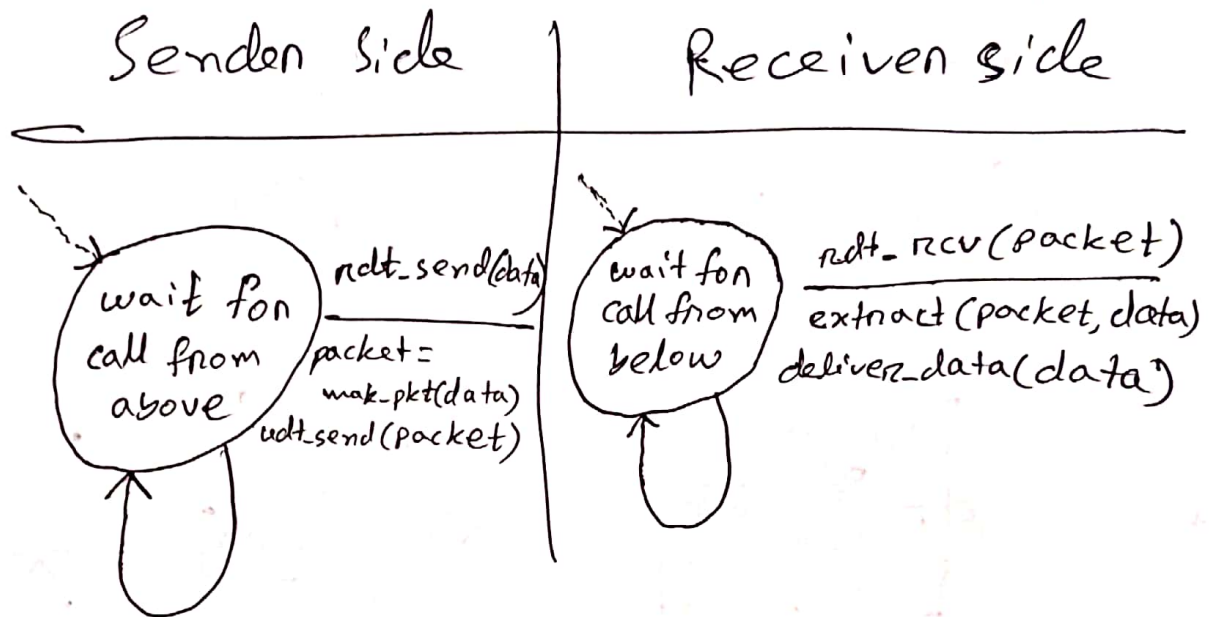 Sender side
Receiver side
wait for
call from
above
rdt_send(data)
packet=
mak_pkt(data)
udt_send(packet)
wait for
call from
below
rdt_rcv(packet)
extract(packet, data)
deliver_data(data)